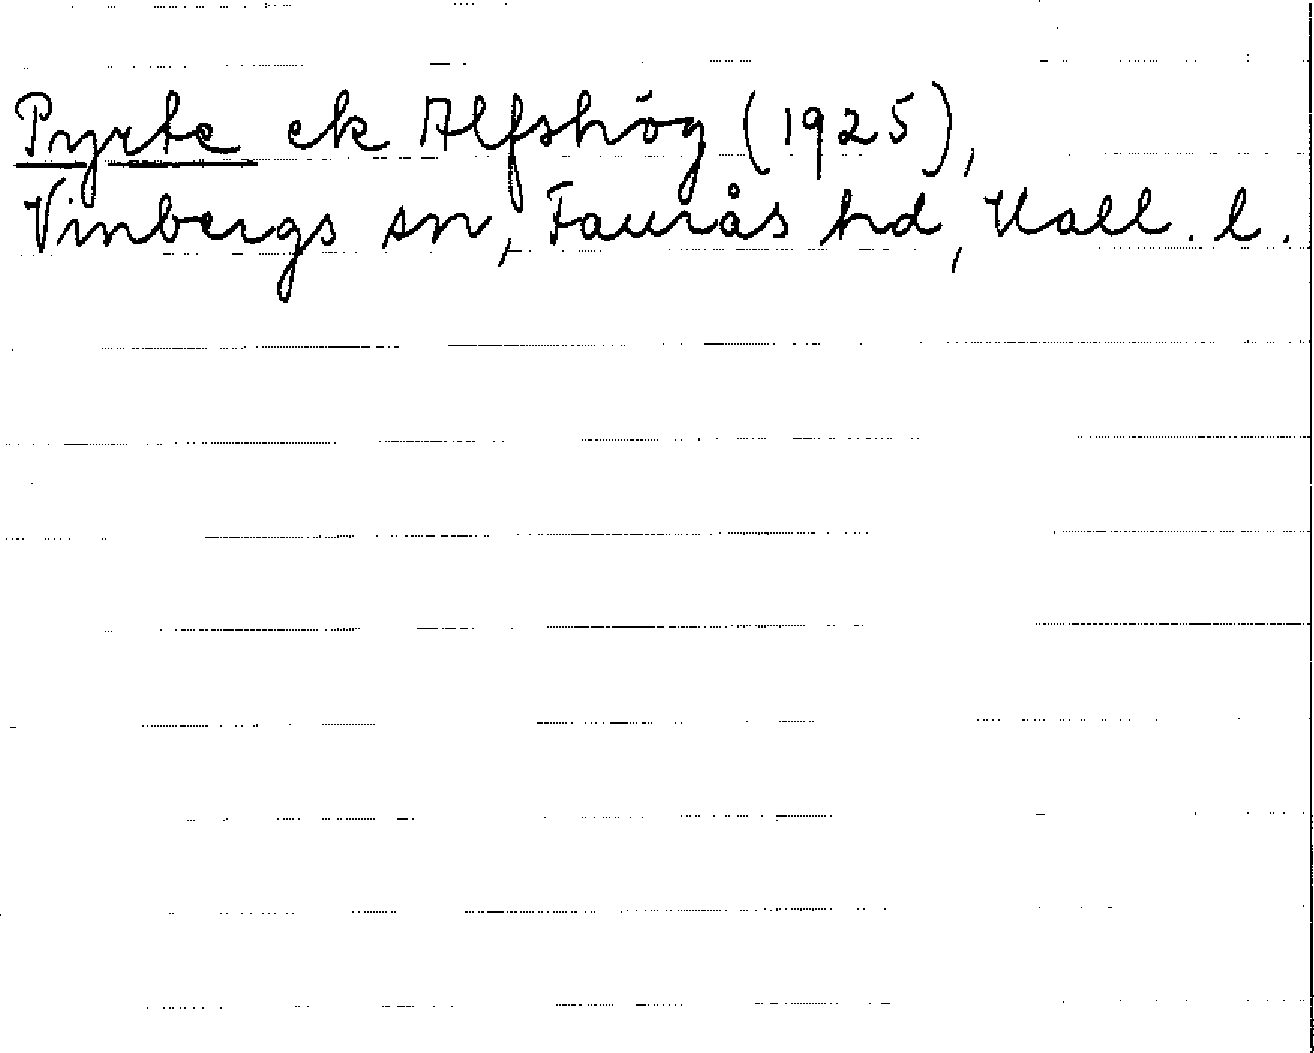 Pyrte ek Alfshög (1925),
Vinbergs sn, Faurås hd, Hall. l.